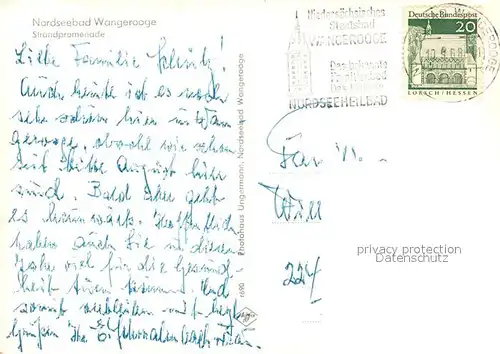 Nordseebad Wangerooge
Strandpromenade
Liebe Familie Schütz!
Auch heute ist es noch
sehr schön hier in Wan-
gerooge, obwohl wir schon
seit Mitte August hier
sind. Bald aber geht
es heimwärts. Hoffentlich
haben auch Sie in diesem
Jahr viel für die Gesund-
heit tun können. Und
somit verbleiben mit herzl.
Grüßen Ihre
Photohaus Ungermann, Nordseebad Wangerooge
1690
Niedersächsisches
Staatsbad
WANGEROOGE
Das
NORDSEEHEILBAD
Deutsche Bundespost
20
LORSCH/HESSEN
WANGEROOGE
Fam.
224
privacy protection
Datenschutz